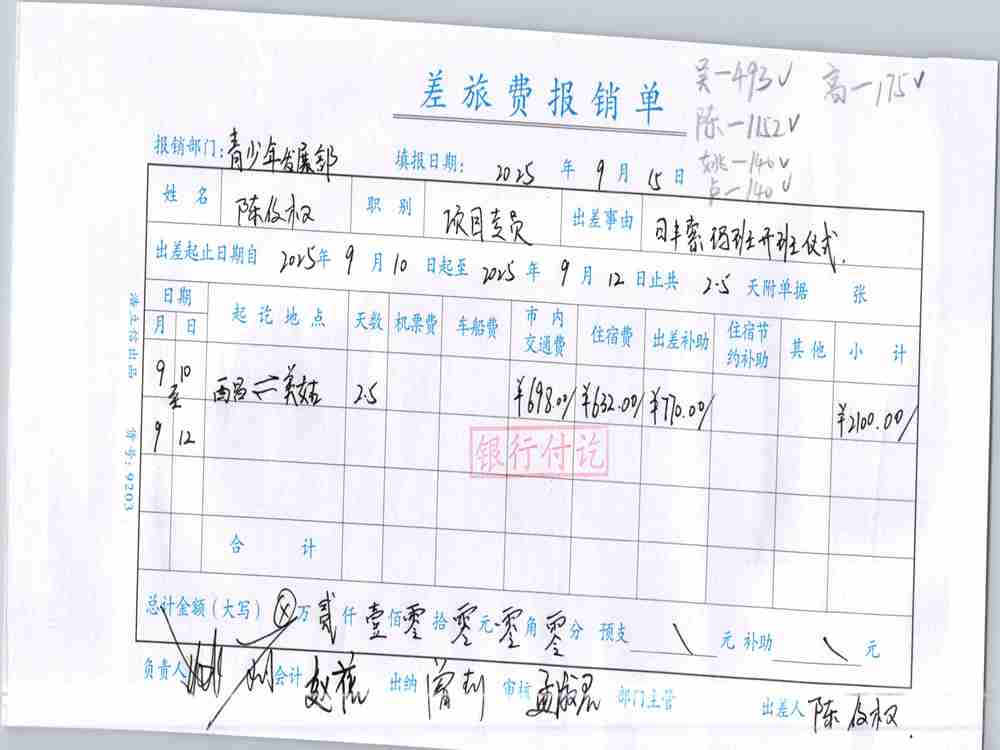 差旅费报销单
吴一493√ 高一175√
陈一1152√
姚一140√
卢一140√
报销部门:青少年发展部 填报日期: 2025 年 9 月 15 日
姓 名 陈俊权 职 别 项目专员 出差事由 开班仪式.
出差起止日期自 2025年 9 月 10 日起至 2025 年 9 月 12 日止共 2.5 天附单据 张
日期 起 讫 地 点 天数 机票费 车船费 市 内 交通费 住宿费 出差补助 住宿节 约补助 其 他 小 计
月 日
9 10 西昌⇌美姑 2.5 ¥698.00/ ¥632.00/ ¥770.00/ ¥2100.00/
至
9 12
银行付讫
合 计
总计金额(大写) ⊗万 贰 仟 壹 佰 零 拾 零 元 零 角 零 分 预支 \ 元 补助 \ 元
负责人 会计 赵 出纳 曾莉 审核 孟 部门主管 出差人 陈俊权
货号:9203